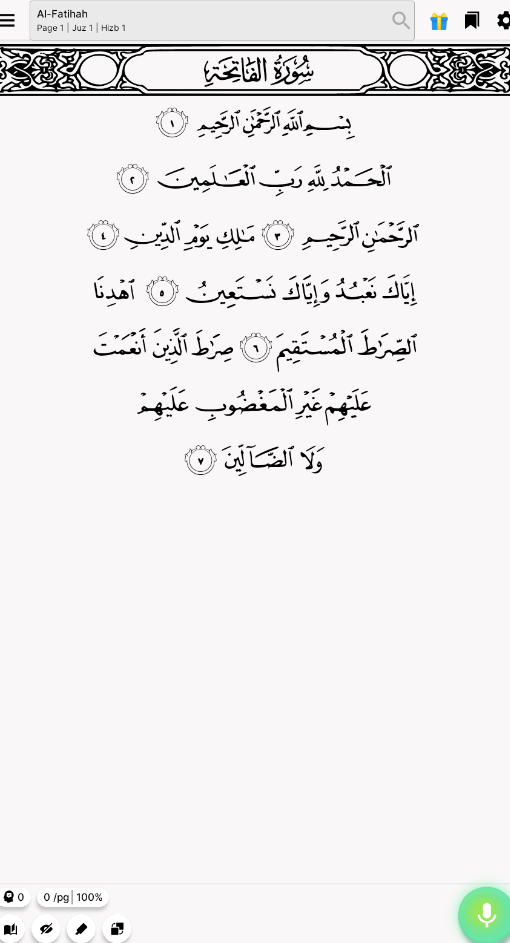 Al-Fatihah
Page 1 | Juz 1 | Hizb 1
سُورَةُ الفَاتِحَةِ
بِسْمِ ٱللَّهِ ٱلرَّحْمَٰنِ ٱلرَّحِيمِ ١
ٱلْحَمْدُ لِلَّهِ رَبِّ ٱلْعَٰلَمِينَ ٢
ٱلرَّحْمَٰنِ ٱلرَّحِيمِ ٣ مَٰلِكِ يَوْمِ ٱلدِّينِ ٤
إِيَّاكَ نَعْبُدُ وَإِيَّاكَ نَسْتَعِينُ ٥ ٱهْدِنَا
ٱلصِّرَٰطَ ٱلْمُسْتَقِيمَ ٦ صِرَٰطَ ٱلَّذِينَ أَنْعَمْتَ
عَلَيْهِمْ غَيْرِ ٱلْمَغْضُوبِ عَلَيْهِمْ
وَلَا ٱلضَّآلِّينَ ٧
0 0 /pg | 100%